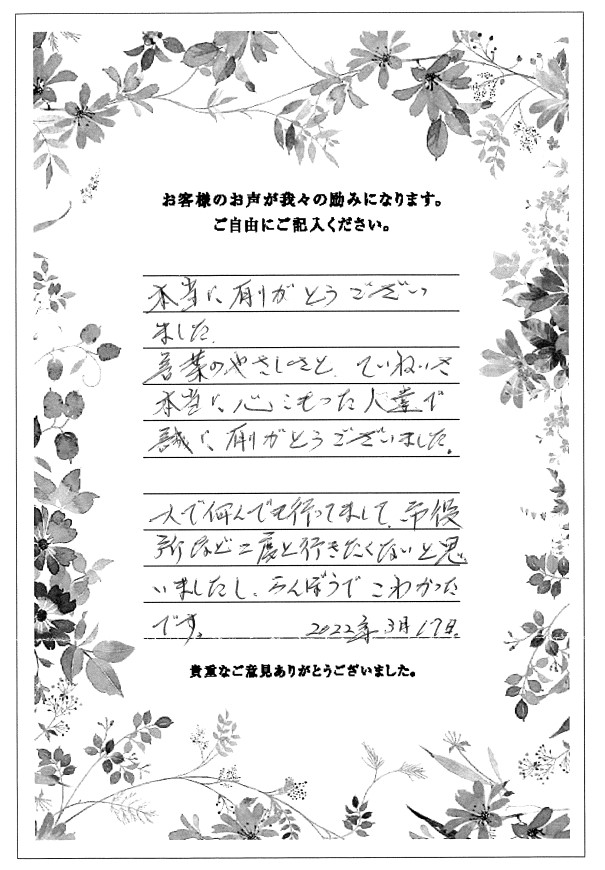 お客様のお声が我々の励みになります。
ご自由にご記入ください。
本当に有りがとうござい
ました。
言葉のやさしさと、ていねいさ
本当に、心こもった人達で
誠に、有りがとうございました。
一人で何んでも行ってまして、市役
所など二度と行きたくないと思
いましたし、らんぼうでこわかった
です。 2022年3月17日.
貴重なご意見ありがとうございました。